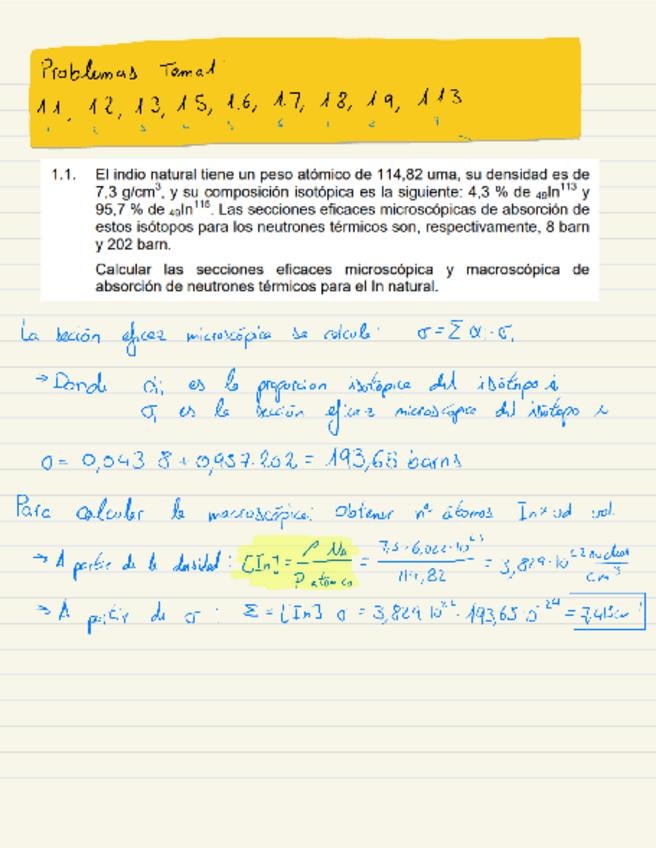 Problemas Tema 1
1.1, 1.2, 1.3, 1.5, 1.6, 1.7, 1.8, 1.9, 1.13
1.1. El indio natural tiene un peso atómico de 114,82 uma, su densidad es de
7,3 g/cm³, y su composición isotópica es la siguiente: 4,3 % de ₄₉In¹¹³ y
95,7 % de ₄₉In¹¹⁵. Las secciones eficaces microscópicas de absorción de
estos isótopos para los neutrones térmicos son, respectivamente, 8 barn
y 202 barn.
Calcular las secciones eficaces microscópica y macroscópica de
absorción de neutrones térmicos para el In natural.
La sección eficaz microscópica se calcula: σ = Σ αᵢ · σᵢ
→ Donde αᵢ es la proporcion isotópica del isótopo i
σᵢ es la sección eficaz microscópica del isótopo i
σ = 0,043 · 8 + 0,957 · 202 = 193,65 barns
Para calcular la macroscópica: Obtener nº átomos In x ud vol.
→ A partir de la densidad: [In] = ρ · Na / P atómico = 7,3 · 6,022 · 10²³ / 114,82 = 3,829 · 10²² nuclear / cm³
→ A partir de σ : Σ = [In] · σ = 3,829 · 10²² · 193,65 · 10⁻²⁴ = 7,41 cm⁻¹